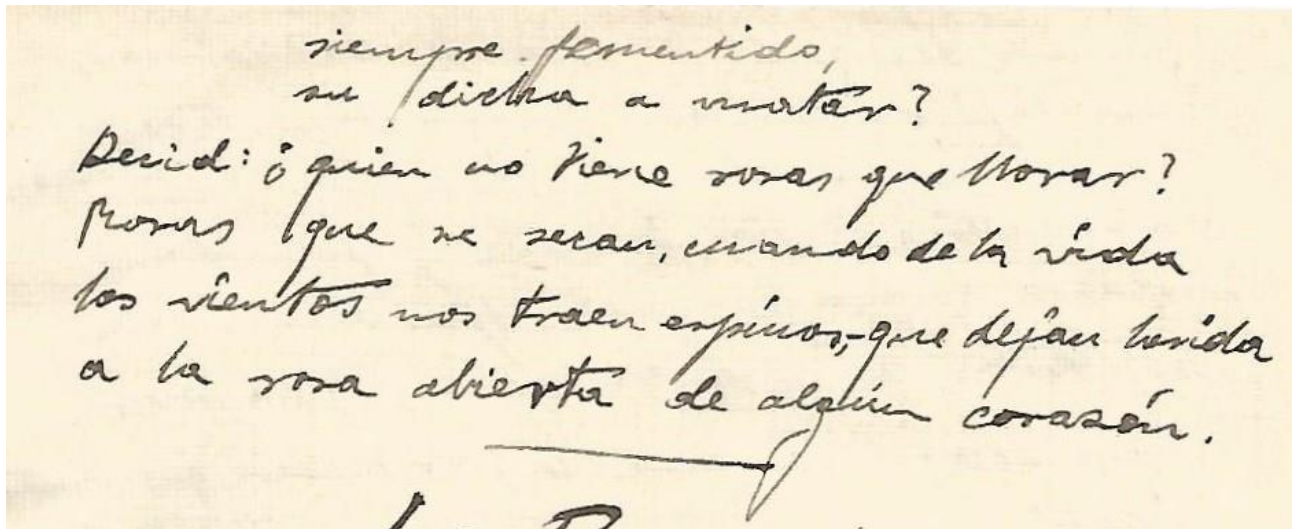 siempre fementido,
su dicha a matar?
Decid: ¿quien no tiene rosas que llorar?
Rosas que se secan, cuando de la vida
los vientos nos traen espinos, que dejan herida
a la rosa abierta de algún corazón.